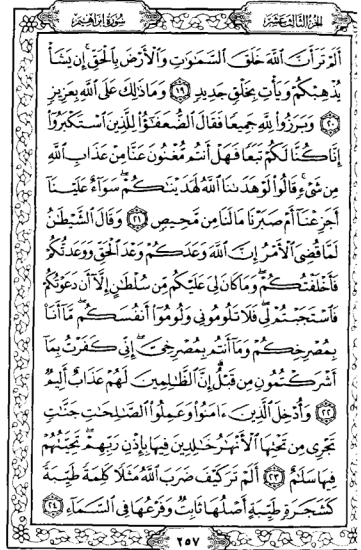 الجزء الثالث عشر
سورة إبراهيم
أَلَمْ تَرَ أَنَّ ٱللَّهَ خَلَقَ ٱلسَّمَٰوَٰتِ وَٱلْأَرْضَ بِٱلْحَقِّ إِن يَشَأْ
يُذْهِبْكُمْ وَيَأْتِ بِخَلْقٍ جَدِيدٍ ١٩ وَمَا ذَٰلِكَ عَلَى ٱللَّهِ بِعَزِيزٍ
٢٠ وَبَرَزُوا۟ لِلَّهِ جَمِيعًا فَقَالَ ٱلضُّعَفَٰٓؤُا۟ لِلَّذِينَ ٱسْتَكْبَرُوٓا۟
إِنَّا كُنَّا لَكُمْ تَبَعًا فَهَلْ أَنتُم مُّغْنُونَ عَنَّا مِنْ عَذَابِ ٱللَّهِ
مِن شَىْءٍ ۚ قَالُوا۟ لَوْ هَدَىٰنَا ٱللَّهُ لَهَدَيْنَٰكُمْ ۖ سَوَآءٌ عَلَيْنَآ
أَجَزِعْنَآ أَمْ صَبَرْنَا مَا لَنَا مِن مَّحِيصٍ ٢١ وَقَالَ ٱلشَّيْطَٰنُ
لَمَّا قُضِىَ ٱلْأَمْرُ إِنَّ ٱللَّهَ وَعَدَكُمْ وَعْدَ ٱلْحَقِّ وَوَعَدتُّكُمْ
فَأَخْلَفْتُكُمْ ۖ وَمَا كَانَ لِىَ عَلَيْكُم مِّن سُلْطَٰنٍ إِلَّآ أَن دَعَوْتُكُمْ
فَٱسْتَجَبْتُمْ لِى ۖ فَلَا تَلُومُونِى وَلُومُوٓا۟ أَنفُسَكُم ۖ مَّآ أَنَا۠
بِمُصْرِخِكُمْ وَمَآ أَنتُم بِمُصْرِخِىَّ ۖ إِنِّى كَفَرْتُ بِمَآ
أَشْرَكْتُمُونِ مِن قَبْلُ ۗ إِنَّ ٱلظَّٰلِمِينَ لَهُمْ عَذَابٌ أَلِيمٌ
٢٢ وَأُدْخِلَ ٱلَّذِينَ ءَامَنُوا۟ وَعَمِلُوا۟ ٱلصَّٰلِحَٰتِ جَنَّٰتٍ
تَجْرِى مِن تَحْتِهَا ٱلْأَنْهَٰرُ خَٰلِدِينَ فِيهَا بِإِذْنِ رَبِّهِمْ ۖ تَحِيَّتُهُمْ
فِيهَا سَلَٰمٌ ٢٣ أَلَمْ تَرَ كَيْفَ ضَرَبَ ٱللَّهُ مَثَلًا كَلِمَةً طَيِّبَةً
كَشَجَرَةٍ طَيِّبَةٍ أَصْلُهَا ثَابِتٌ وَفَرْعُهَا فِى ٱلسَّمَآءِ ٢٤
٢٥٧